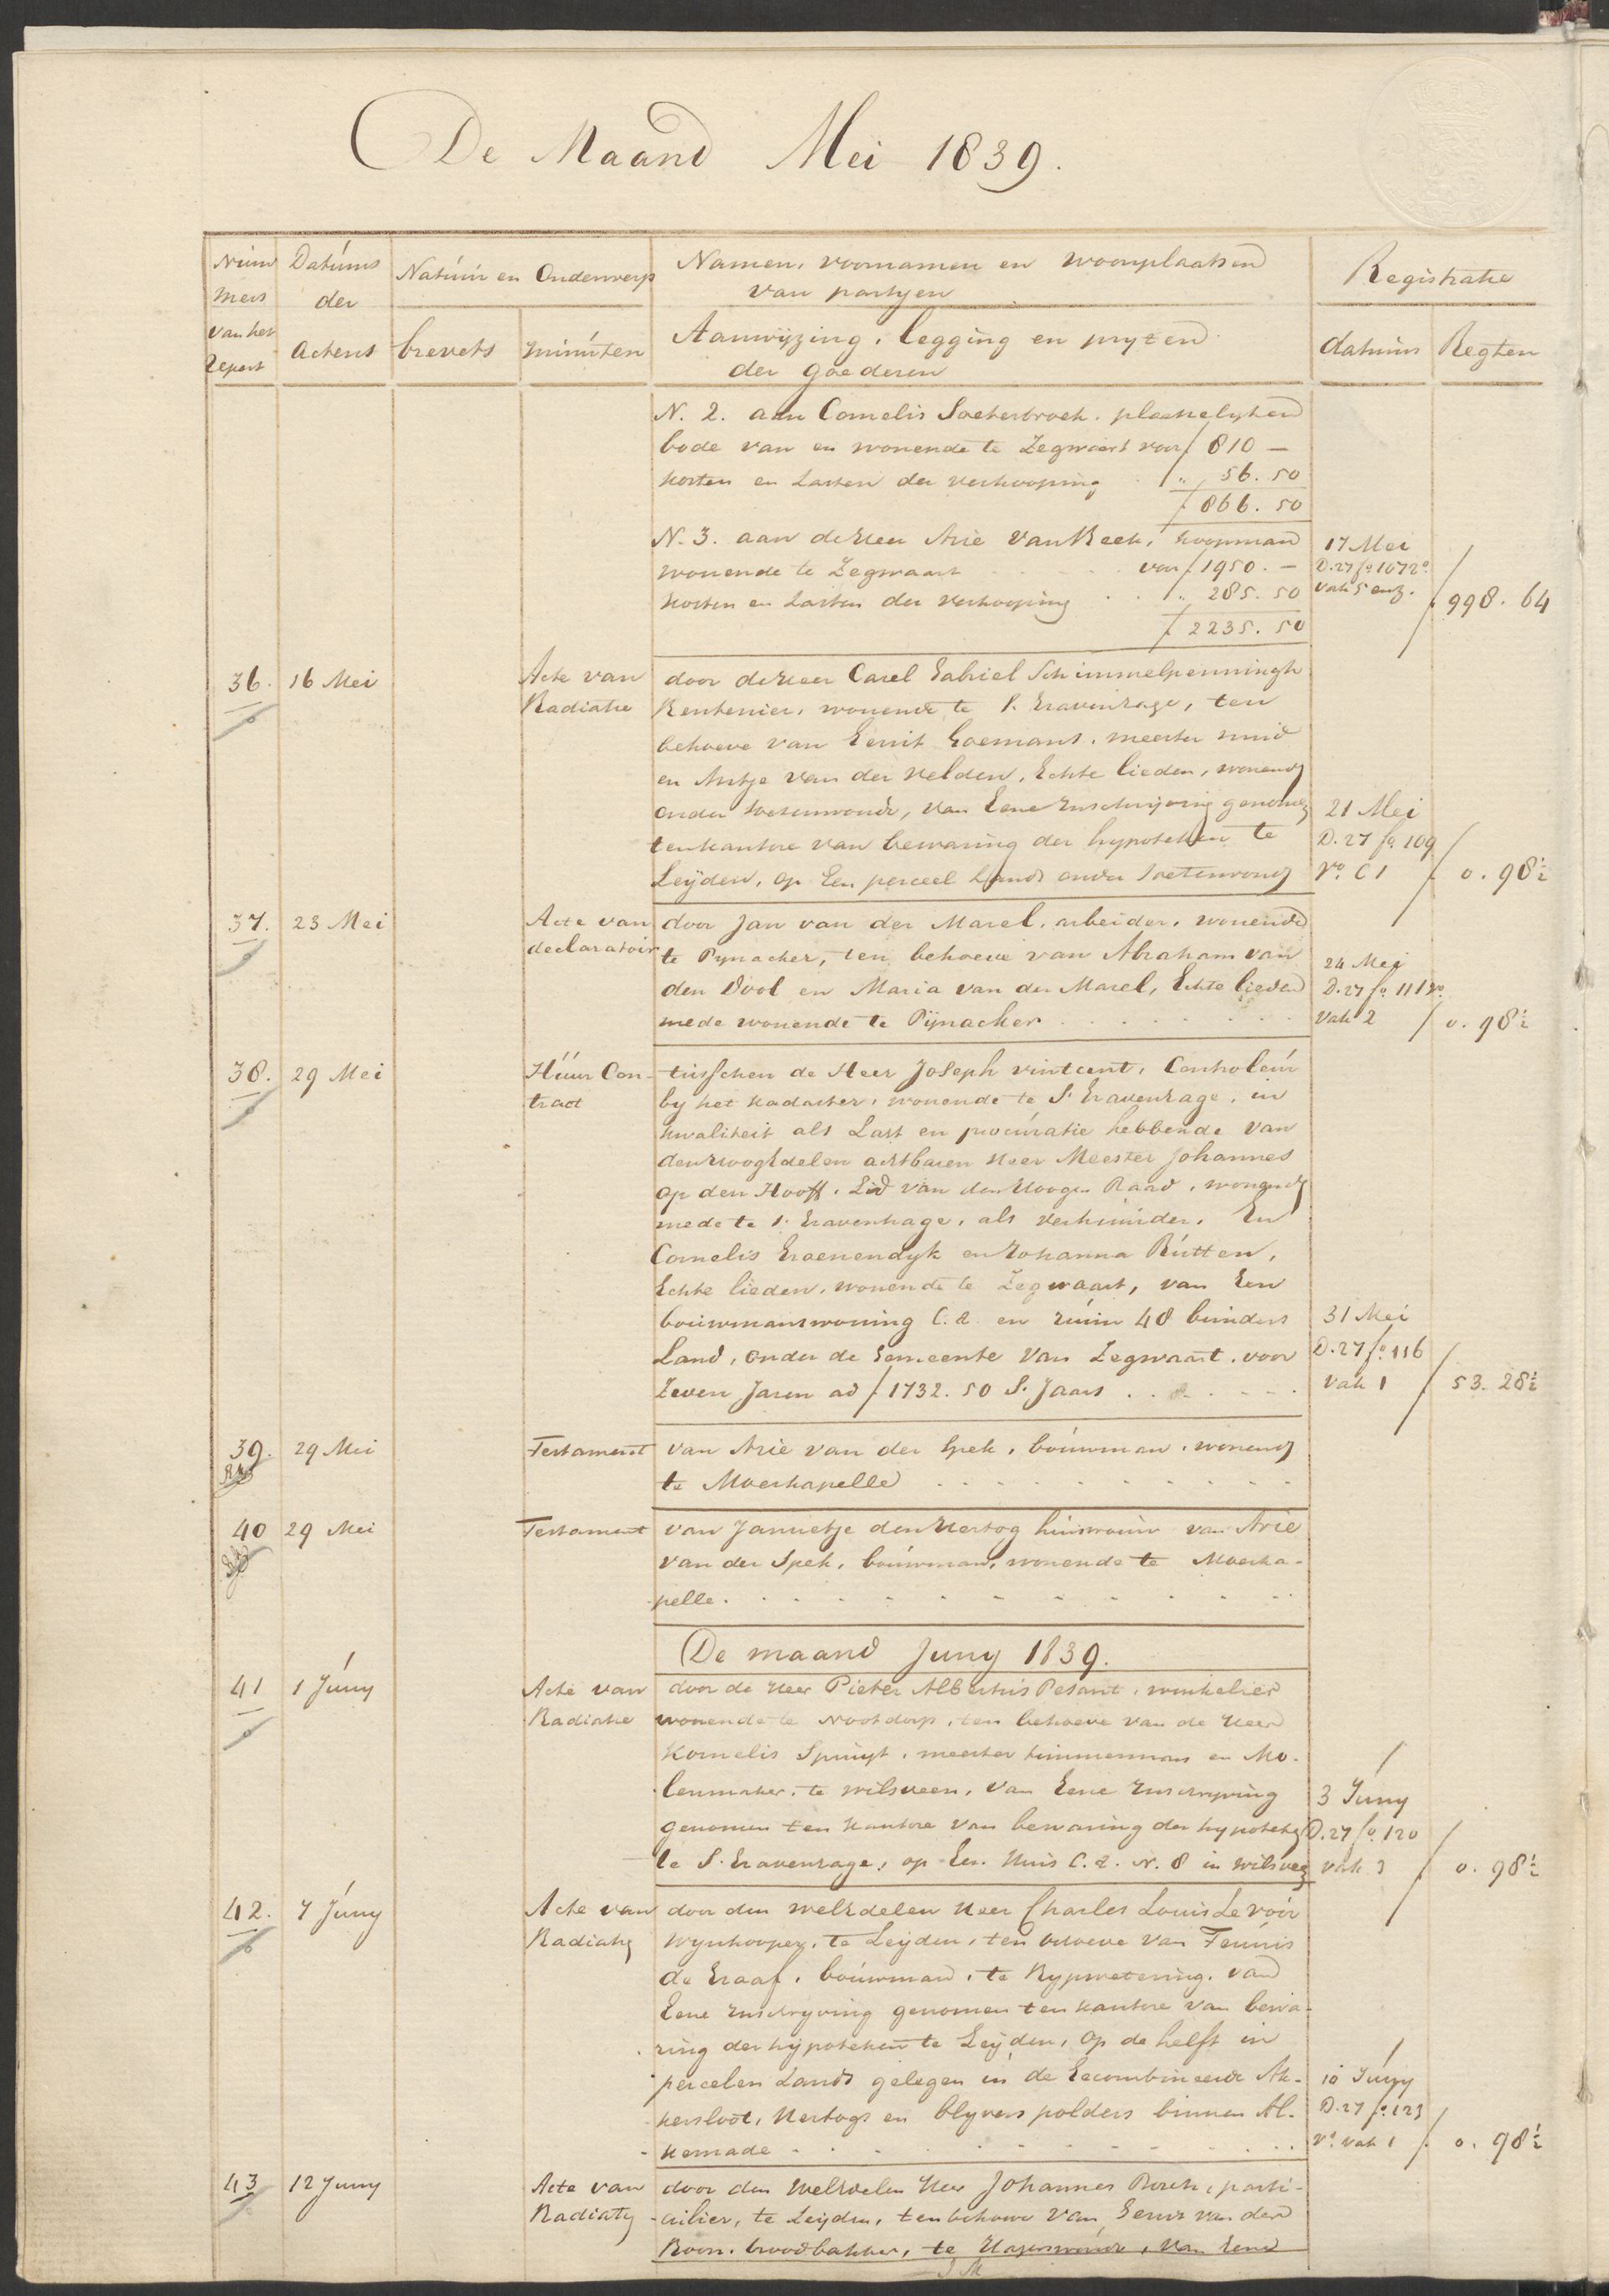 De Maand Mei 1839.
Num
mers
van het
Repert
Datúms
der
actens
Natúúr en Onderwerp
brevets
minúten
Namen, voornamen en woonplaatsen
van partyen
Aanwijzing, legging en pryzen
der goederen
Registratie
datúms
Regten
N. 2. aan Cornelis Soeterbroek, plaatselyken
bode van en wonende te Zegwaart voor f 810 —
kosten en Lasten der verkooping „ 56. 50
f 866. 50
N. 3. aan de Heer Arie van Beek, koopman
wonende te Zegwaart voor f 1950. —
kosten en Lasten der verkooping „ 285. 50
f 2235. 50
17 Mei
D. 27 fo 107 2o
vak 5 enz.
f 998. 64
36. 16 Mei
Acte van
Radiatie
door de Heer Carel Gabriel Schimmelpenningh
Rentenier, wonende te S. Gravenhage, ten
behoeve van Gerrit Goemans, meester smid
en Antje van der Velden, Echte lieden, wonende
onder Soeterwoude, van Eene Inschrijving genomen
ten kantore van bewaring der hypotheken te
Leÿden, op Een perceel Lands onder Soeterwoude
21 Mei
D. 27 fo. 109
Vo. C 1
f 0. 98½
37. 23 Mei
Acte van
declaratoir
door Jan van der Marel, arbeider, wonende
te Pynacker, ten behoeve van Abraham van
den Dool en Maria van der Marel, Echte lieden
mede wonende te Pÿnacker
24 Mei
D. 27 fo. 111 vo
vak 2
f 0. 98½
38. 29 Mei
Húúr Con-
tract
tusschen de Heer Joseph vintcent, Controleúr
by het kadaster, wonende te S. Gravenhage, in
kwaliteit als Last en procúratie hebbende van
den Hoog Edelen achtbaren Heer Meester Johannes
op den Hooff, Lid van den Hoogen Raad, wonende
mede te S. Gravenhage, als verhuurder, En
Cornelis Groenendyk en Johanna Rútten,
Echte lieden, wonende te Zegwaart, van Een
boúwmanswoning C. A. en rúim 48 bunders
Land, onder de Gemeente van Zegwaart, voor
Zeven Jaren ad f 1732. 50 S. Jaars
31 Mei
D. 27 fo. 116
vak 1
f 53. 28½
39. 29 Mei
Testament
van Arie van der Spek, boúwman, wonende
te Moerkapelle
40 29 Mei
Testament
van Jannetje den Hertog húisvroúw van Arie
van der Spek, boúwman, wonende te Moerka-
pelle.
De maand Juny 1839.
41 1 Júny
Acte van
Radiatie
door de Heer Pieter Albertús Pesant, winkelier
wonende te Nootdorp, ten behoeve van de Heer
Kornelis Spruyt, meester timmerman en Mo-
lenmaker, te wilsveen, van Eene Inschryving
genomen ten kantore van bewaring der hypotheken
te S. Gravenhage, op Een Huis C. A. N. 8 in wilsveen
3 Júny
D. 27 fo. 120
vak 3
f 0. 98½
42. 7 Júny
Acte van
Radiatie
door den welEdelen Heer Charles Louis Le voir
wynkooper, te Leÿden, ten behoeve van Teunis
de Graaf, boúwman, te Rypwetering, van
Eene Inschryving genomen ten kantore van bewa-
ring der hypotheken te Leÿden, op de helft in
percelen Lands gelegen in de Gecombineerde Ak-
kersloot, Hertogs en blyvers polders binnen Al-
kemade
10 Júny
D. 27 fo. 123
Vo. vak 1
f 0. 98½
43 12 Juny
Acte van
Radiatie
door den WelEdelen Heer Johannes Bosch, parti-
culier, te Leÿden, ten behoeve van Gerrit van der
Boon, broodbakker, te Hazerswoude, van Eene